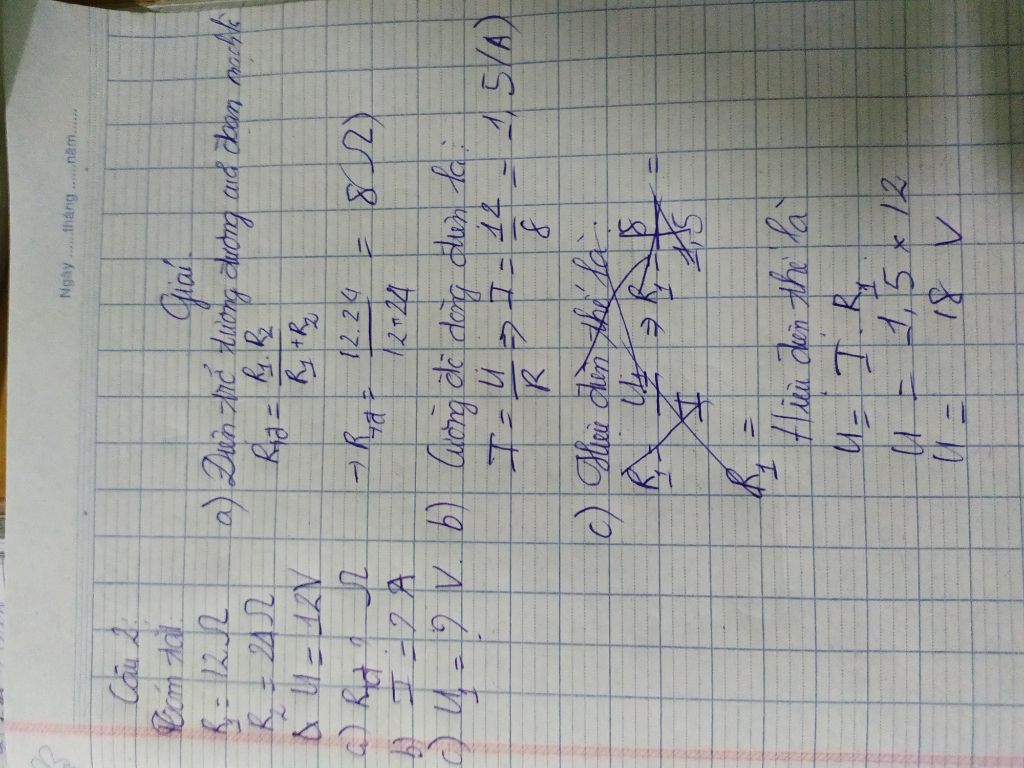 Ngày ......tháng ......năm......
Câu 2.
Tóm tắt
R₁ = 12 Ω
R₂ = 24 Ω
U = 12V
a) Rtđ ? Ω
b) I = ? A
c) U₁ = ? V
Giải.
a) Điện trở tương đương của đoạn mạch
Rtđ = R₁ . R₂ / R₁ + R₂
→ Rtđ = 12.24 / 12+24 = 8(Ω)
b) Cường độ dòng điện là:
I = U / R => I = 12 / 8 = 1,5(A)
c) Hiệu điện thế là:
R₁ = U₁ / I => R₁ = 8 / 1,5 =
R₁ =
Hiệu điện thế là
U = I . R₁
U = 1,5 x 12
U = 18 V